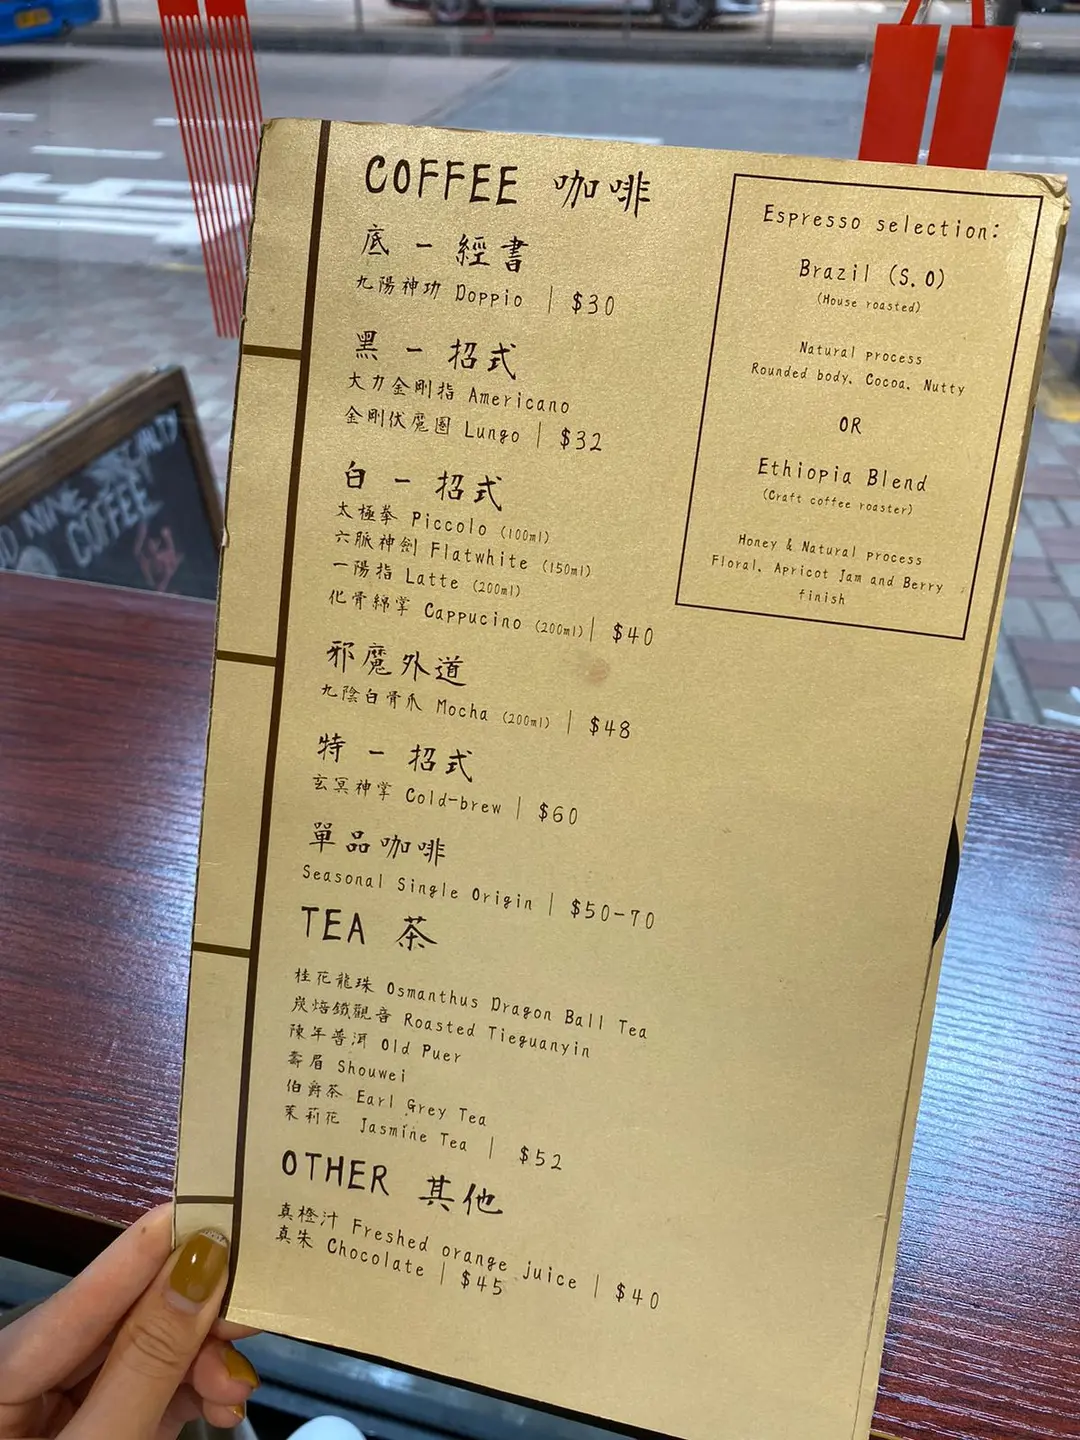 COFFEE 咖啡
底 - 經書
九陽神功 Doppio | $30
黑 - 招式
大力金剛指 Americano
金剛伏魔圈 Lungo | $32
白 - 招式
太極拳 Piccolo (100ml)
六脈神劍 Flatwhite (150ml)
一陽指 Latte (200ml)
化骨綿掌 Cappucino (200ml) | $40
邪魔外道
九陰白骨爪 Mocha (200ml) | $48
特 - 招式
玄冥神掌 Cold-brew | $60
單品咖啡
Seasonal Single Origin | $50-70
TEA 茶
桂花龍珠 Osmanthus Dragon Ball Tea
炭焙鐵觀音 Roasted Tieguanyin
陳年普洱 Old Puer
壽眉 Shouwei
伯爵茶 Earl Grey Tea
茉莉花 Jasmine Tea | $52
OTHER 其他
真橙汁 Freshed orange juice | $40
真朱 Chocolate | $45
Espresso selection:
Brazil (S.O)
(House roasted)
Natural process
Rounded body, Cocoa, Nutty
OR
Ethiopia Blend
(Craft coffee roaster)
Honey & Natural process
Floral, Apricot Jam and Berry
finish
COFFEE